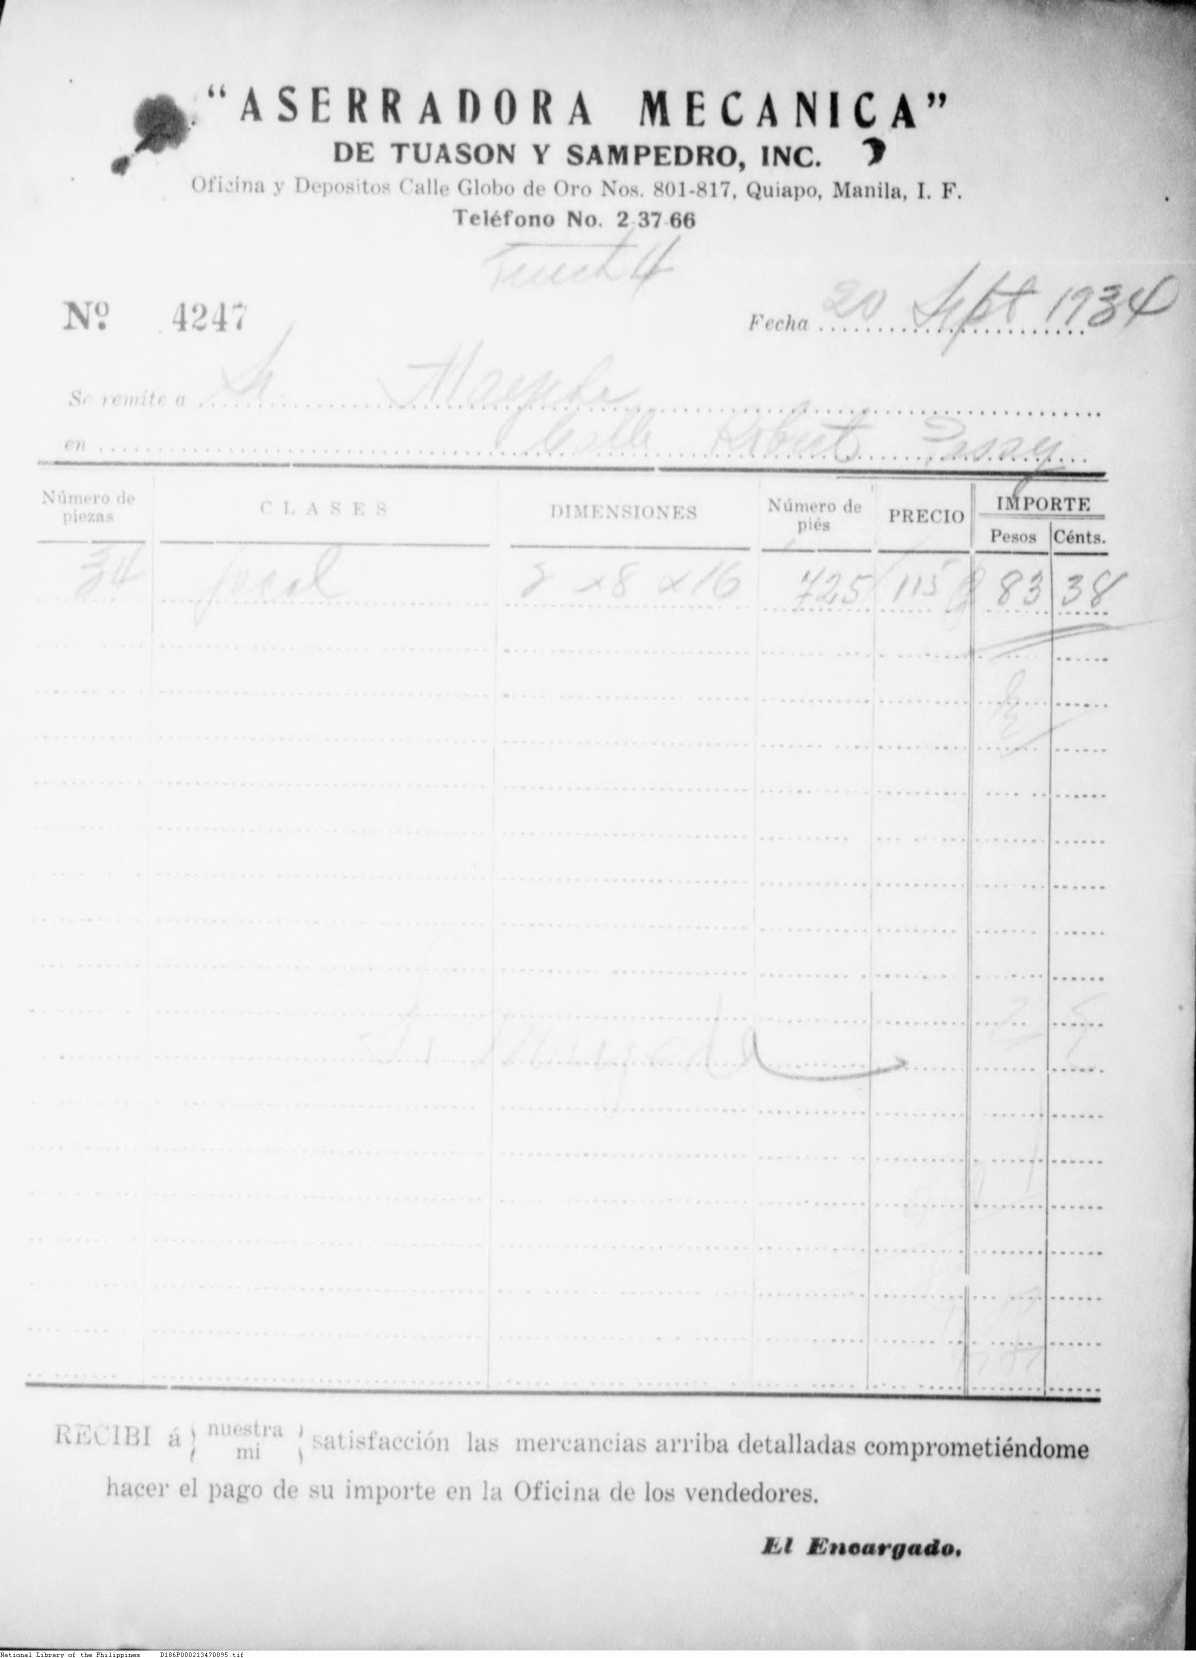 "ASERRADORA MECANICA"
DE TUASON Y SAMPEDRO, INC.
Oficina y Depositos Calle Globo de Oro Nos. 801-817, Quiapo, Manila, I. F.
Teléfono No. 2-37-66
Truck 4
Nº. 4247
Fecha 20 Sept 1934
Se remite a Sr.
en Calle Robert Pasay
Número de piezas CLASES DIMENSIONES Número de piés PRECIO IMPORTE
Pesos Cénts.
34 2 x 8 x 16 725 115 83 38
Sr.
RECIBI á nuestra satisfacción las mercancias arriba detalladas comprometiéndome
mi
hacer el pago de su importe en la Oficina de los vendedores.
El Encargado.
National Library of the Philippines D186P000213470895.tif